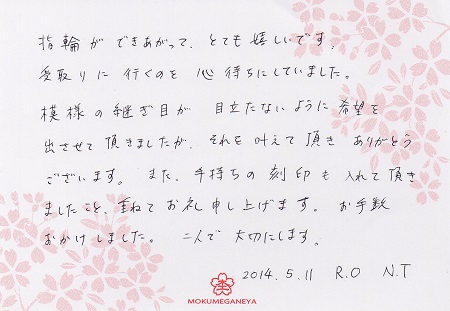 指輪ができあがって、とても嬉しいです。
受取りに行くのを心待ちにしていました。
模様の継ぎ目が目立たないように希望を
出させて頂きましたが、それを叶えて頂きありがとう
ございます。また、手持ちの刻印も入れて頂き
ましたこと、重ねてお礼申し上げます。お手数
おかけしました。二人で大切にします。
2014.5.11 R.O N.T
MOKUMEGANEYA